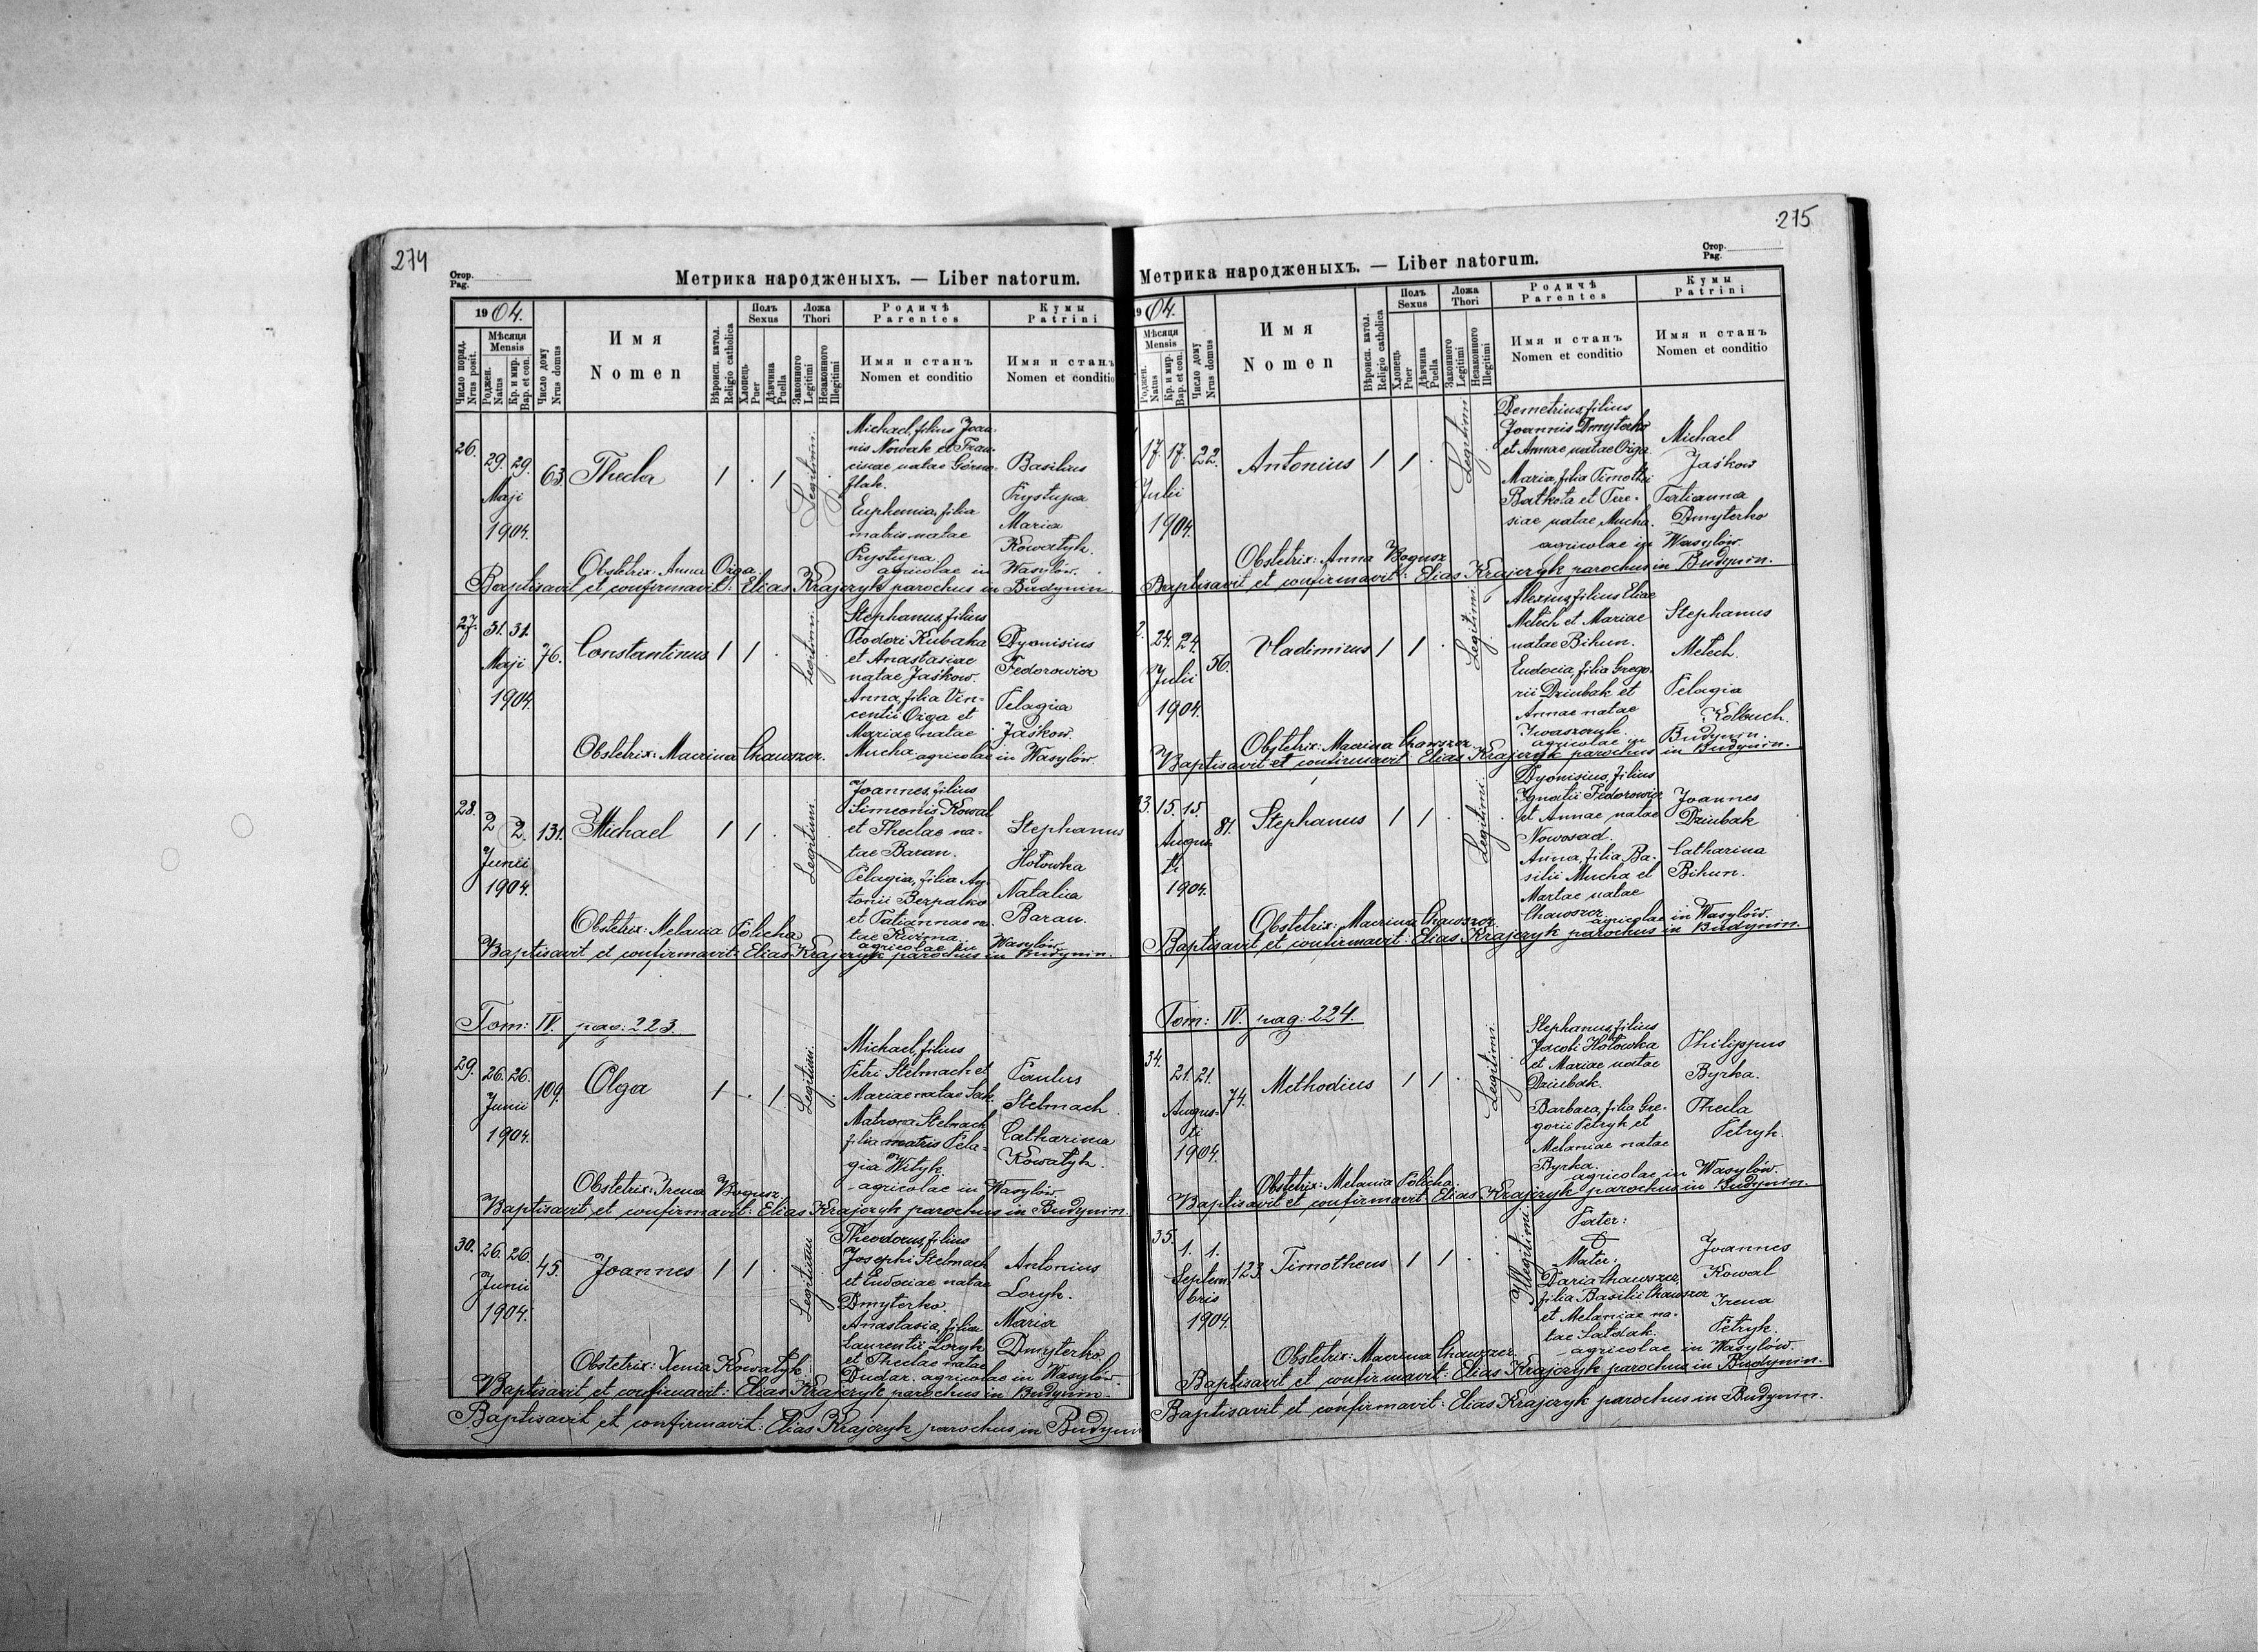 274
Стор.
Pag.
Метрика народженыхъ. — Liber natorum.
1904.
Число поряд.
Nrus posit.
Мѣсяця
Mensis
Роджен.
Natus
Кр. и мир.
Bap. et con.
Число дому
Nrus domus
Имя
Nomen
Вѣроисп. катол.
Religio catholica
Полъ
Sexus
Хлопець
Puer
Дѣвчина
Puella
Ложа
Thori
Законного
Legitimi
Незаконного
Illegitimi
Родичѣ
Parentes
Имя и станъ
Nomen et conditio
Кумы
Patrini
Имя и станъ
Nomen et conditio
26.
29. 29.
Maji
1904.
63.
Thecla
1 . 1
Legitimi.
Michael, filius Joan-
nis Nowak et Fran-
ciscae natae Górno-
flak.
Euphemia, filia
matris natae
Prystupa
agricolae in Wasylów.
Basilius
Prystupa
Maria
Kowalyk.
Obstetrix: Anna Oiga.
Baptisavit et confirmavit: Elias Krajczyk parochus in Budynin.
27.
31. 31.
Maji
1904.
76.
Constantinus
1 1 .
Legitimi.
Stephanus, filius
Teodori Kubaha
et Anastasiae
natae Jaśkow.
Anna, filia Vin-
centii Oiga et
Mariae natae
Mucha agricolae in Wasylów.
Dyonisius
Fedorowicz
Pelagia
Jaśkow.
Obstetrix: Macrina Chawszcz.
28.
2 2.
Junii
1904.
131.
Michael
1 1 .
Legitimi.
Joannes, filius
Simeonis Kowal
et Theclae na-
tae Baran.
Pelagia, filia An-
tonii Berpalko
et Tatiannae na-
tae Kuzma.
agricolae in Wasylów.
Stephanus
Hołowka
Natalia
Baran.
Obstetrix: Melania Policha
Baptisavit et confirmavit: Elias Krajczyk parochus in Budynin.
Tom: IV. pag: 223.
29.
26. 26.
Junii
1904.
109.
Olga
1 . 1
Legitimi.
Michael, filius
Petri Stelmach et
Mariae natae Sak.
Matrona Stelmach
filia matris Pela-
gia Wityk.
agricolae in Wasylów.
Paulus
Stelmach.
Catharina
Kowałyk.
Obstetrix: Irena Bogusz.
Baptisavit et confirmavit: Elias Krajczyk parochus in Budynin.
30.
26. 26.
Junii
1904.
45.
Joannes
1 1 .
Legitimi
Theodorus, filius
Josephi Stelmach
et Eudociae natae
Dmyterko.
Anastasia, filia
Laurentii Loryk
et Theclae natae
Dudar. agricolae in Wasylów.
Antonius
Loryk.
Maria
Dmyterko.
Obstetrix: Xenia Kowałyk.
Baptisavit et confirmavit: Elias Krajczyk parochus in Budynin.
Baptisavit et confirmavit: Elias Krajczyk parochus in Budynin
275
Стор.
Pag.
Метрика народженыхъ. — Liber natorum.
1904.
Мѣсяця
Mensis
Роджен.
Natus
Кр. и мир.
Bap. et con.
Число дому
Nrus domus
Имя
Nomen
Вѣроисп. катол.
Religio catholica
Полъ
Sexus
Хлопець
Puer
Дѣвчина
Puella
Ложа
Thori
Законного
Legitimi
Незаконного
Illegitimi
Родичѣ
Parentes
Имя и станъ
Nomen et conditio
Кумы
Patrini
Имя и станъ
Nomen et conditio
17. 17.
Julii
1904.
22.
Antonius
1 1 .
Legitimi
Demetrius, filius
Joannis Dmyterko
et Annae natae Oiga.
Maria, filia Timothei
Batkota et Tere-
siae natae Mucha.
agricolae in Wasylów.
Michael
Jaśkow
Tatianna
Dmyterko
Obstetrix: Anna Bogusz
Baptisavit et confirmavit: Elias Krajczyk parochus in Budynin.
24. 24.
Julii
1904.
56.
Vladimirus
1 1 .
Legitimi.
Alexius, filius Eliae
Metech et Mariae
natae Bihun.
Eudocia, filia Grego-
rii Dziubak et
Annae natae
Iwaszczuk.
agricolae in Budynin.
Stephanus
Metech.
Pelagia
Kolbuch.
Obstetrix: Macrina Chawszcz.
Baptisavit et confirmavit: Elias Krajczyk parochus in Budynin.
33.
15. 15.
Augus-
ti
1904.
81.
Stephanus
1 1 .
Legitimi.
Dyonisius, filius
Ignatii Fedorowicz
et Annae natae
Nowosad.
Anna, filia Ba-
silii Mucha et
Martae natae
Chawszcz
agricolae in Wasylów.
Joannes
Dziubak
Catharina
Bihun.
Obstetrix: Macrina Chawszcz.
Baptisavit et confirmavit: Elias Krajczyk parochus in Budynin.
Tom: IV. pag: 224.
34.
21. 21.
Augus-
ti
1904.
74.
Methodius
1 1 .
Legitimi.
Stephanus, filius
Jacobi Hołowka
et Mariae natae
Dziubak.
Barbara, filia Gre-
gorii Petryk et
Melaniae natae
Byrka.
agricolae in Wasylów.
Philippus
Byrka.
Thecla
Petryk.
Obstetrix: Melania Policha.
Baptisavit et confirmavit: Elias Krajczyk parochus in Budynin.
35.
1. 1.
Septem-
bris
1904.
123.
Timotheus
1 1 .
Illegitimi.
Pater:
Mater:
Daria Chawszcz,
filia Basilii Chawszcz
et Melaniae na-
tae Łatdak.
agricolae in Wasylów.
Joannes
Kowal
Irena
Petryk.
Obstetrix: Macrina Chawszcz.
Baptisavit et confirmavit: Elias Krajczyk parochus in Budynin.
Baptisavit et confirmavit: Elias Krajczyk parochus in Budynin.